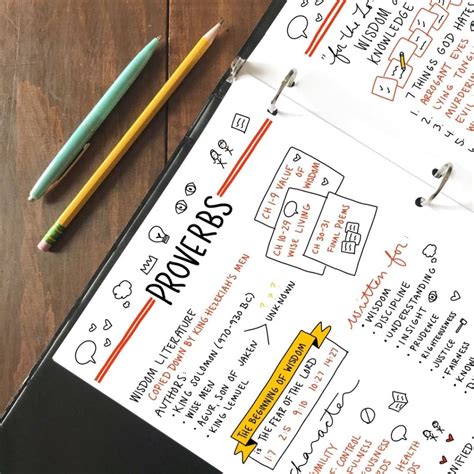 "for the
WISDOM
KNOWLEDGE
7 THINGS GOD HATE
1. ARROGANT EYES
2. LYING
3.
4.
PROVERBS
WISDOM LITERATURE
COPIED DOWN BY KING HEZEKIAH'S MEN
AUTHORS:
• KING SOLOMON (970-930 BC)
• WISE MEN
• AGUR, SON OF JAKEH
• KING LEMUEL
? ? ?
UNKNOWN
CH 1-9 VALUE OF WISDOM
CH 10-29 WISE LIVING
CH 30-31 FINAL POEMS
THE BEGINNING OF WISDOM
IS THE FEAR OF THE LORD
1:7 2:5 9:10 10:27 14:27
written for:
• WISDOM
• DISCIPLINE
• UNDERSTANDING
• INSIGHT
• PRUDENCE
• RIGHTEOUSNESS
• JUSTICE
• FAIRNESS
• KNOWLEDGE
character